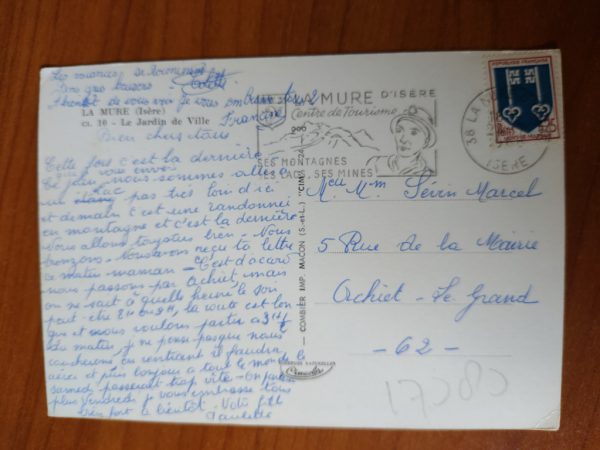 Les vacances se
Gros baisers Colette
A bientôt de vous voir je vous embrasse tous 2
Francine
LA MURE (Isère)
cs. 10 - Le Jardin de Ville
Bien chers tous
Cette fois c'est la dernière
que je vous envoi
Ce jour nous sommes allés
lac
un étang pas très loin d'ici
et demain c'est une randonnée
en montagne et c'est la dernière
Nous allons toujours bien - Nous
bronzons - Nous avons reçu ta lettre
ce matin maman - C'est d'accord
nous passons par Achiet, mais
on ne sait à quelle heure le soir
peut-être 8h ou 9h, la route est lon
gue et nous voulons partir à 3h
du matin, je ne pense pas que nous
coucherons en rentrant il faudra
et puis bonjour à tout le monde le
samedi passerait trop vite - on
plus Vendredi je vous embrasse tous
bien fort et bientôt - Votre fille
Paulette
COMBIER IMP. MACON (S.-et-L.) "CIM"
LA MURE D'ISÈRE
Centre de Tourisme
SES MONTAGNES
SES LACS, SES MINES
38 LA MURE
ISÈRE
REPUBLIQUE FRANÇAISE
0,25
MONT-DE-MARSAN
M. et Mme Sevin Marcel
5 Rue de la Mairie
Achiet - Le Grand
- 62 -